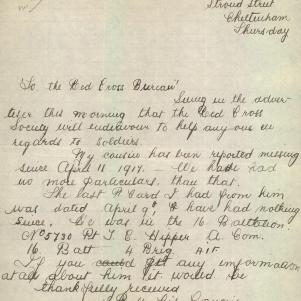 Stroud Street
Cheltenham
Thursday
To, the Red Cross Bureau"
Seeing in the adver-
tiser this morning that the Red Cross
Society will endeavour to help any one in
regards to soldiers.
My cousin has been reported missing
since April 11 1917. — We have had
no more particulars, than that.
The last P. Card I had from him
was dated April 9th, & have had nothing
since, He was in the 16 Battalion.
No 5730 Pt T. E. Hipper A. Com.
16 Batt 4 Brig AIF
If you could get any information
at all about him it would be
thankfully received